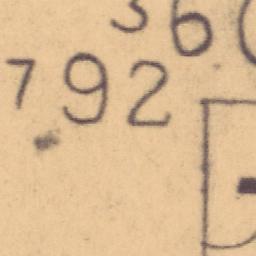 36
792